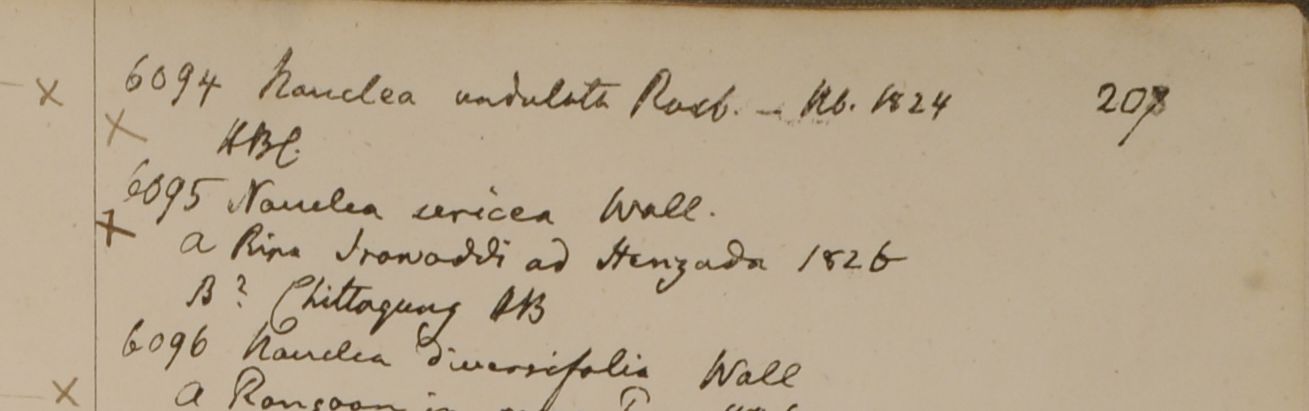 x 6094 Nauclea undulata Roxb. – Hb. 1824 207
x HBC.
6095 Nauclea sericea Wall.
x a Ripa Irawaddi ad Henzada 1826
B? Chittagung HB
6096 Nauclea diversifolia Wall
x a Rangoon